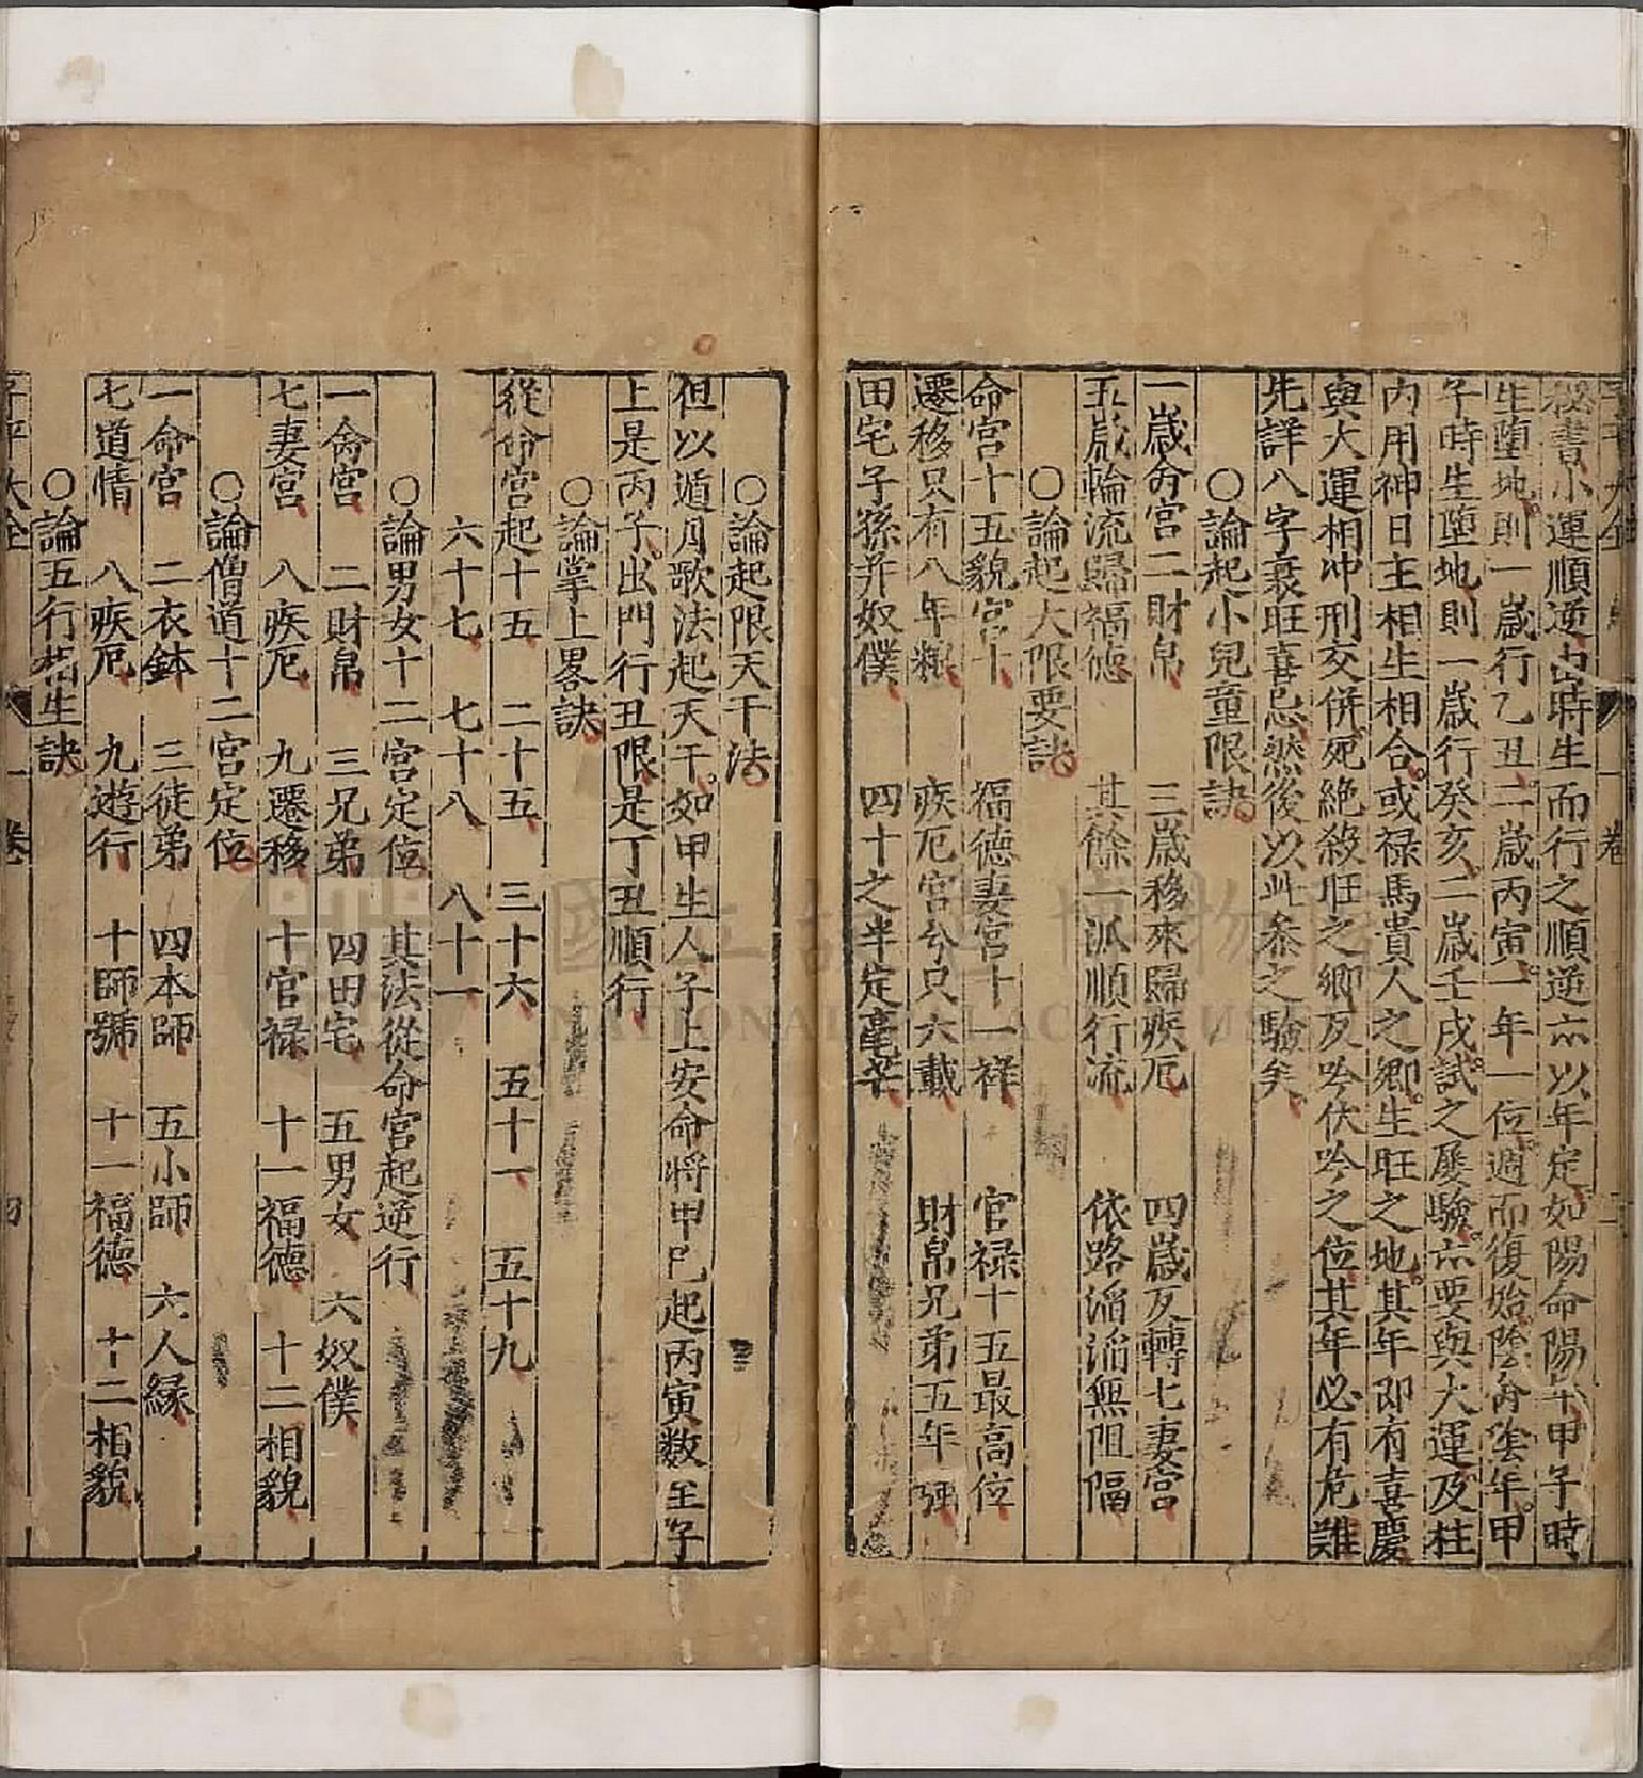 秘書小運順逆由時生而行之順逆亦以年定如陽命陽年甲子時
生墮地則一歲行乙丑二歲丙寅一年一位週而復始陰命陰年甲
子時生墮地則一歲行癸亥二歲壬戌試之屡驗亦要與大運及柱
内用神日主相生相合或禄馬貴人之鄉生旺之地其年即有喜慶
與大運相冲刑交併死絶殺旺之鄉反吟伏吟之位其年必有危難
先詳八字衰旺喜忌然後以此叅之驗矣
○論起小兒童限訣
一歲命宮二財帛　三歲移來歸疾厄　四歲反轉七妻宮
五歲輪流歸福德　其餘一派順行流　依路滔滔無阻隔
○論起大限要訣
命宮十五貌宮十　福德妻宮十一祥　官禄十五最高位
遷移只有八年粮　疾厄宮兮只六載　財帛兄弟五年强
田宅子孫并奴僕　四十之半定毫芒
○論起限天干法
但以遁月歌法起天干如甲生人子上安命將甲巳起丙寅数至子
上是丙子出門行丑限是丁丑順行
○論掌上畧訣
從命宮起十五　二十五　三十六　五十一　五十九
六十七　七十八　八十一
○論男女十二宮定位　其法從命宮起逆行
一命宮　二財帛　三兄弟　四田宅　五男女　六奴僕
七妻宮　八疾厄　九遷移　十官禄　十一福德　十二相貌
○論僧道十二宮定位
一命宮　二衣鉢　三徒弟　四本師　五小師　六人緣
七道情　八疾厄　九遊行　十師號　十一福德　十二相貌
○論五行相生訣
子平大全　一卷　四
國立故宮博物院
NATIONAL PALACE MUSEUM